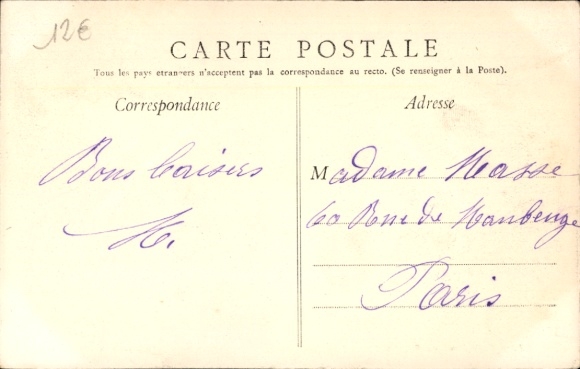 12€
CARTE POSTALE
Tous les pays etrangers n'acceptent pas la correspondance au recto. (Se renseigner à la Poste).
Correspondance
Bons baisers
M.
Adresse
Madame Masse
60 Rue de Maubeuge
Paris